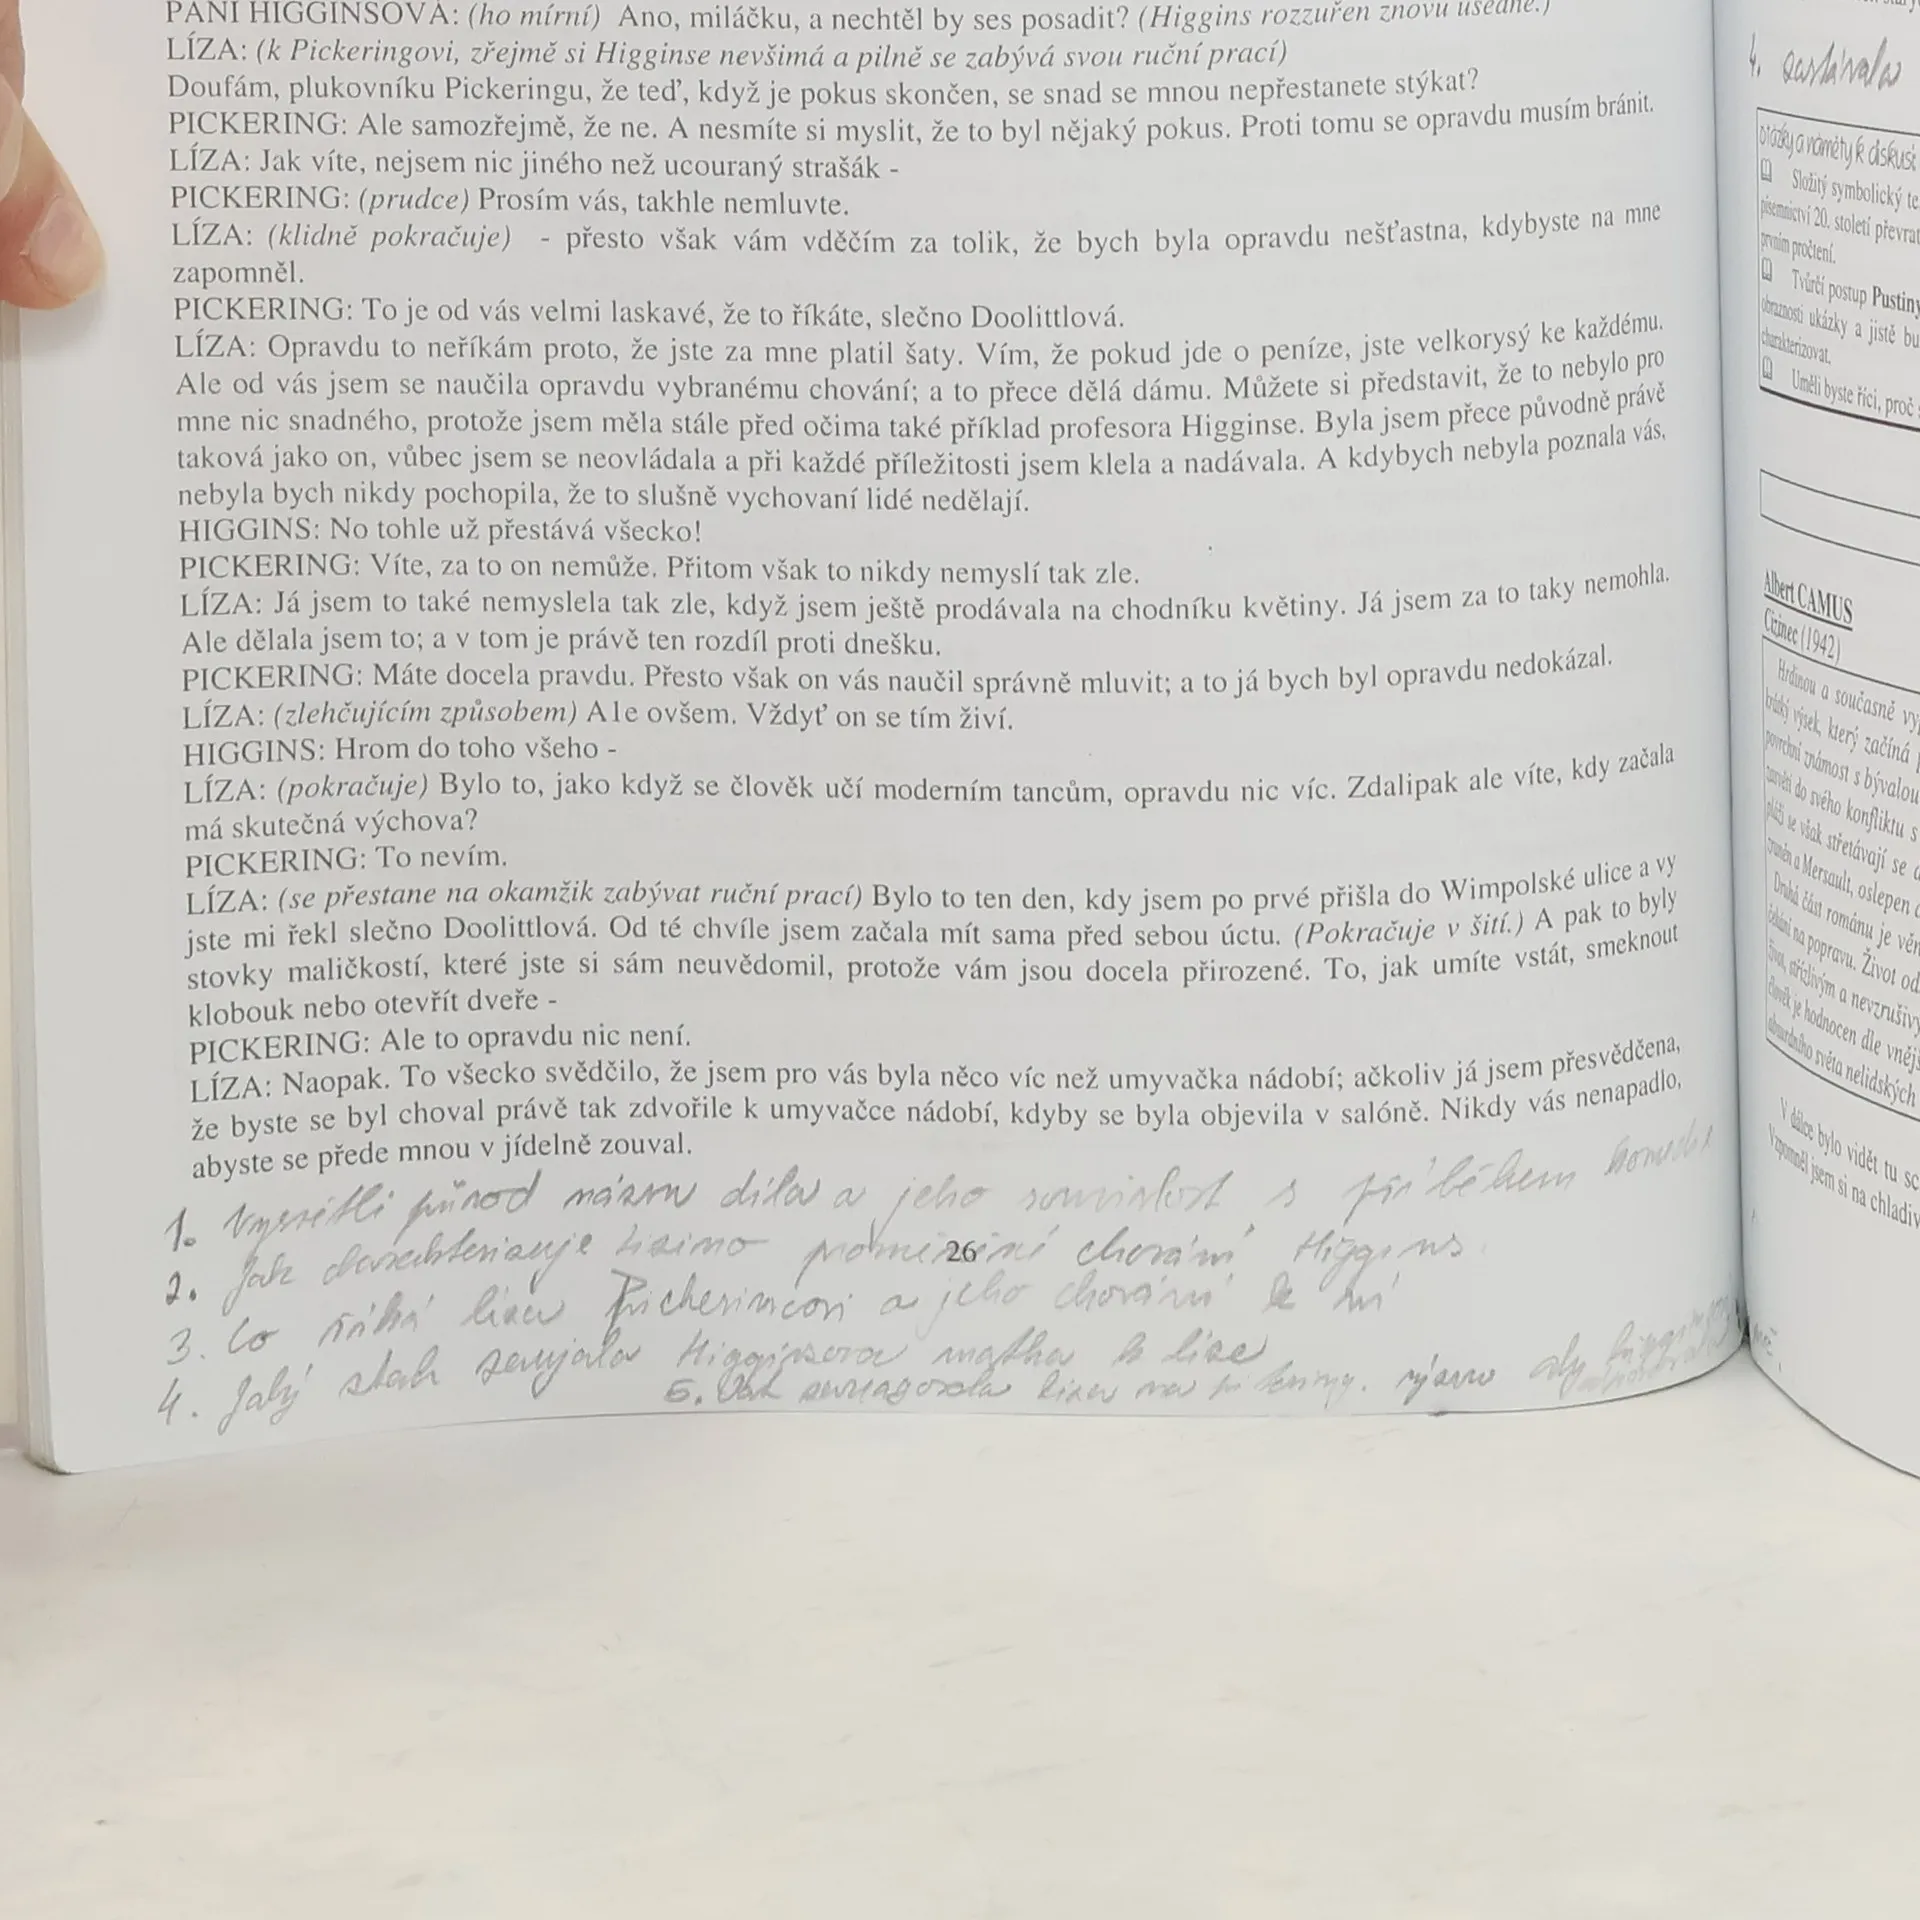 PANÍ HIGGINSOVÁ: (ho mírní) Ano, miláčku, a nechtěl by ses posadit? (Higgins rozzuřen znovu usedne.)
LÍZA: (k Pickeringovi, zřejmě si Higginse nevšimá a pilně se zabývá svou ruční prací)
Doufám, plukovníku Pickeringu, že teď, když je pokus skončen, se snad se mnou nepřestanete stýkat?
PICKERING: Ale samozřejmě, že ne. A nesmíte si myslit, že to byl nějaký pokus. Proti tomu se opravdu musím bránit.
LÍZA: Jak víte, nejsem nic jiného než ucouraný strašák -
PICKERING: (prudce) Prosím vás, takhle nemluvte.
LÍZA: (klidně pokračuje) - přesto však vám vděčím za tolik, že bych byla opravdu nešťastna, kdybyste na mne
zapomněl.
PICKERING: To je od vás velmi laskavé, že to říkáte, slečno Doolittlová.
LÍZA: Opravdu to neříkám proto, že jste za mne platil šaty. Vím, že pokud jde o peníze, jste velkorysý ke každému.
Ale od vás jsem se naučila opravdu vybranému chování; a to přece dělá dámu. Můžete si představit, že to nebylo pro
mne nic snadného, protože jsem měla stále před očima také příklad profesora Higginse. Byla jsem přece původně právě
taková jako on, vůbec jsem se neovládala a při každé příležitosti jsem klela a nadávala. A kdybych nebyla poznala vás,
nebyla bych nikdy pochopila, že to slušně vychovaní lidé nedělají.
HIGGINS: No tohle už přestává všecko!
PICKERING: Víte, za to on nemůže. Přitom však to nikdy nemyslí tak zle.
LÍZA: Já jsem to také nemyslela tak zle, když jsem ještě prodávala na chodníku květiny. Já jsem za to taky nemohla.
Ale dělala jsem to; a v tom je právě ten rozdíl proti dnešku.
PICKERING: Máte docela pravdu. Přesto však on vás naučil správně mluvit; a to já bych byl opravdu nedokázal.
LÍZA: (zlehčujícím způsobem) Ale ovšem. Vždyť on se tím živí.
HIGGINS: Hrom do toho všeho -
LÍZA: (pokračuje) Bylo to, jako když se člověk učí moderním tancům, opravdu nic víc. Zdalipak ale víte, kdy začala
má skutečná výchova?
PICKERING: To nevím.
LÍZA: (se přestane na okamžik zabývat ruční prací) Bylo to ten den, kdy jsem po prvé přišla do Wimpolské ulice a vy
jste mi řekl slečno Doolittlová. Od té chvíle jsem začala mít sama před sebou úctu. (Pokračuje v šití.) A pak to byly
stovky maličkostí, které jste si sám neuvědomil, protože vám jsou docela přirozené. To, jak umíte vstát, smeknout
klobouk nebo otevřít dveře -
PICKERING: Ale to opravdu nic není.
LÍZA: Naopak. To všecko svědčilo, že jsem pro vás byla něco víc než umyvačka nádobí; ačkoliv já jsem přesvědčena,
že byste se byl choval právě tak zdvořile k umyvačce nádobí, kdyby se byla objevila v salóně. Nikdy vás nenapadlo,
abyste se přede mnou v jídelně zouval.
1. Vysvětli původ názvu díla a jeho souvislost s příběhem
2. Jak charakterizuje chování Higgins
26
3. Co říká a jeho chování k ní
4. Jaký zaujala Higginsova matka k líze
5. líza na aby
4.
otázky a náměty k diskusi
Složitý symbolický
písemnictví 20. století
prvním pročtení.
Tvůrčí postup
obraznosti ukázky a jistě
charakterizovat.
Uměli byste říci, proč
Albert CAMUS
Cizinec (1942)
Hrdinou a současně
krátký výsek, který začíná
povrchní známost s bývalou
do svého konfliktu s
pláži se však střetávají se
a Mersault, oslepen
Druhá část románu je
čekání na popravu. Život
střízlivým a
člověk je hodnocen dle
absurdního světa nelidských
V dálce bylo vidět tu
Vzpomněl jsem si na